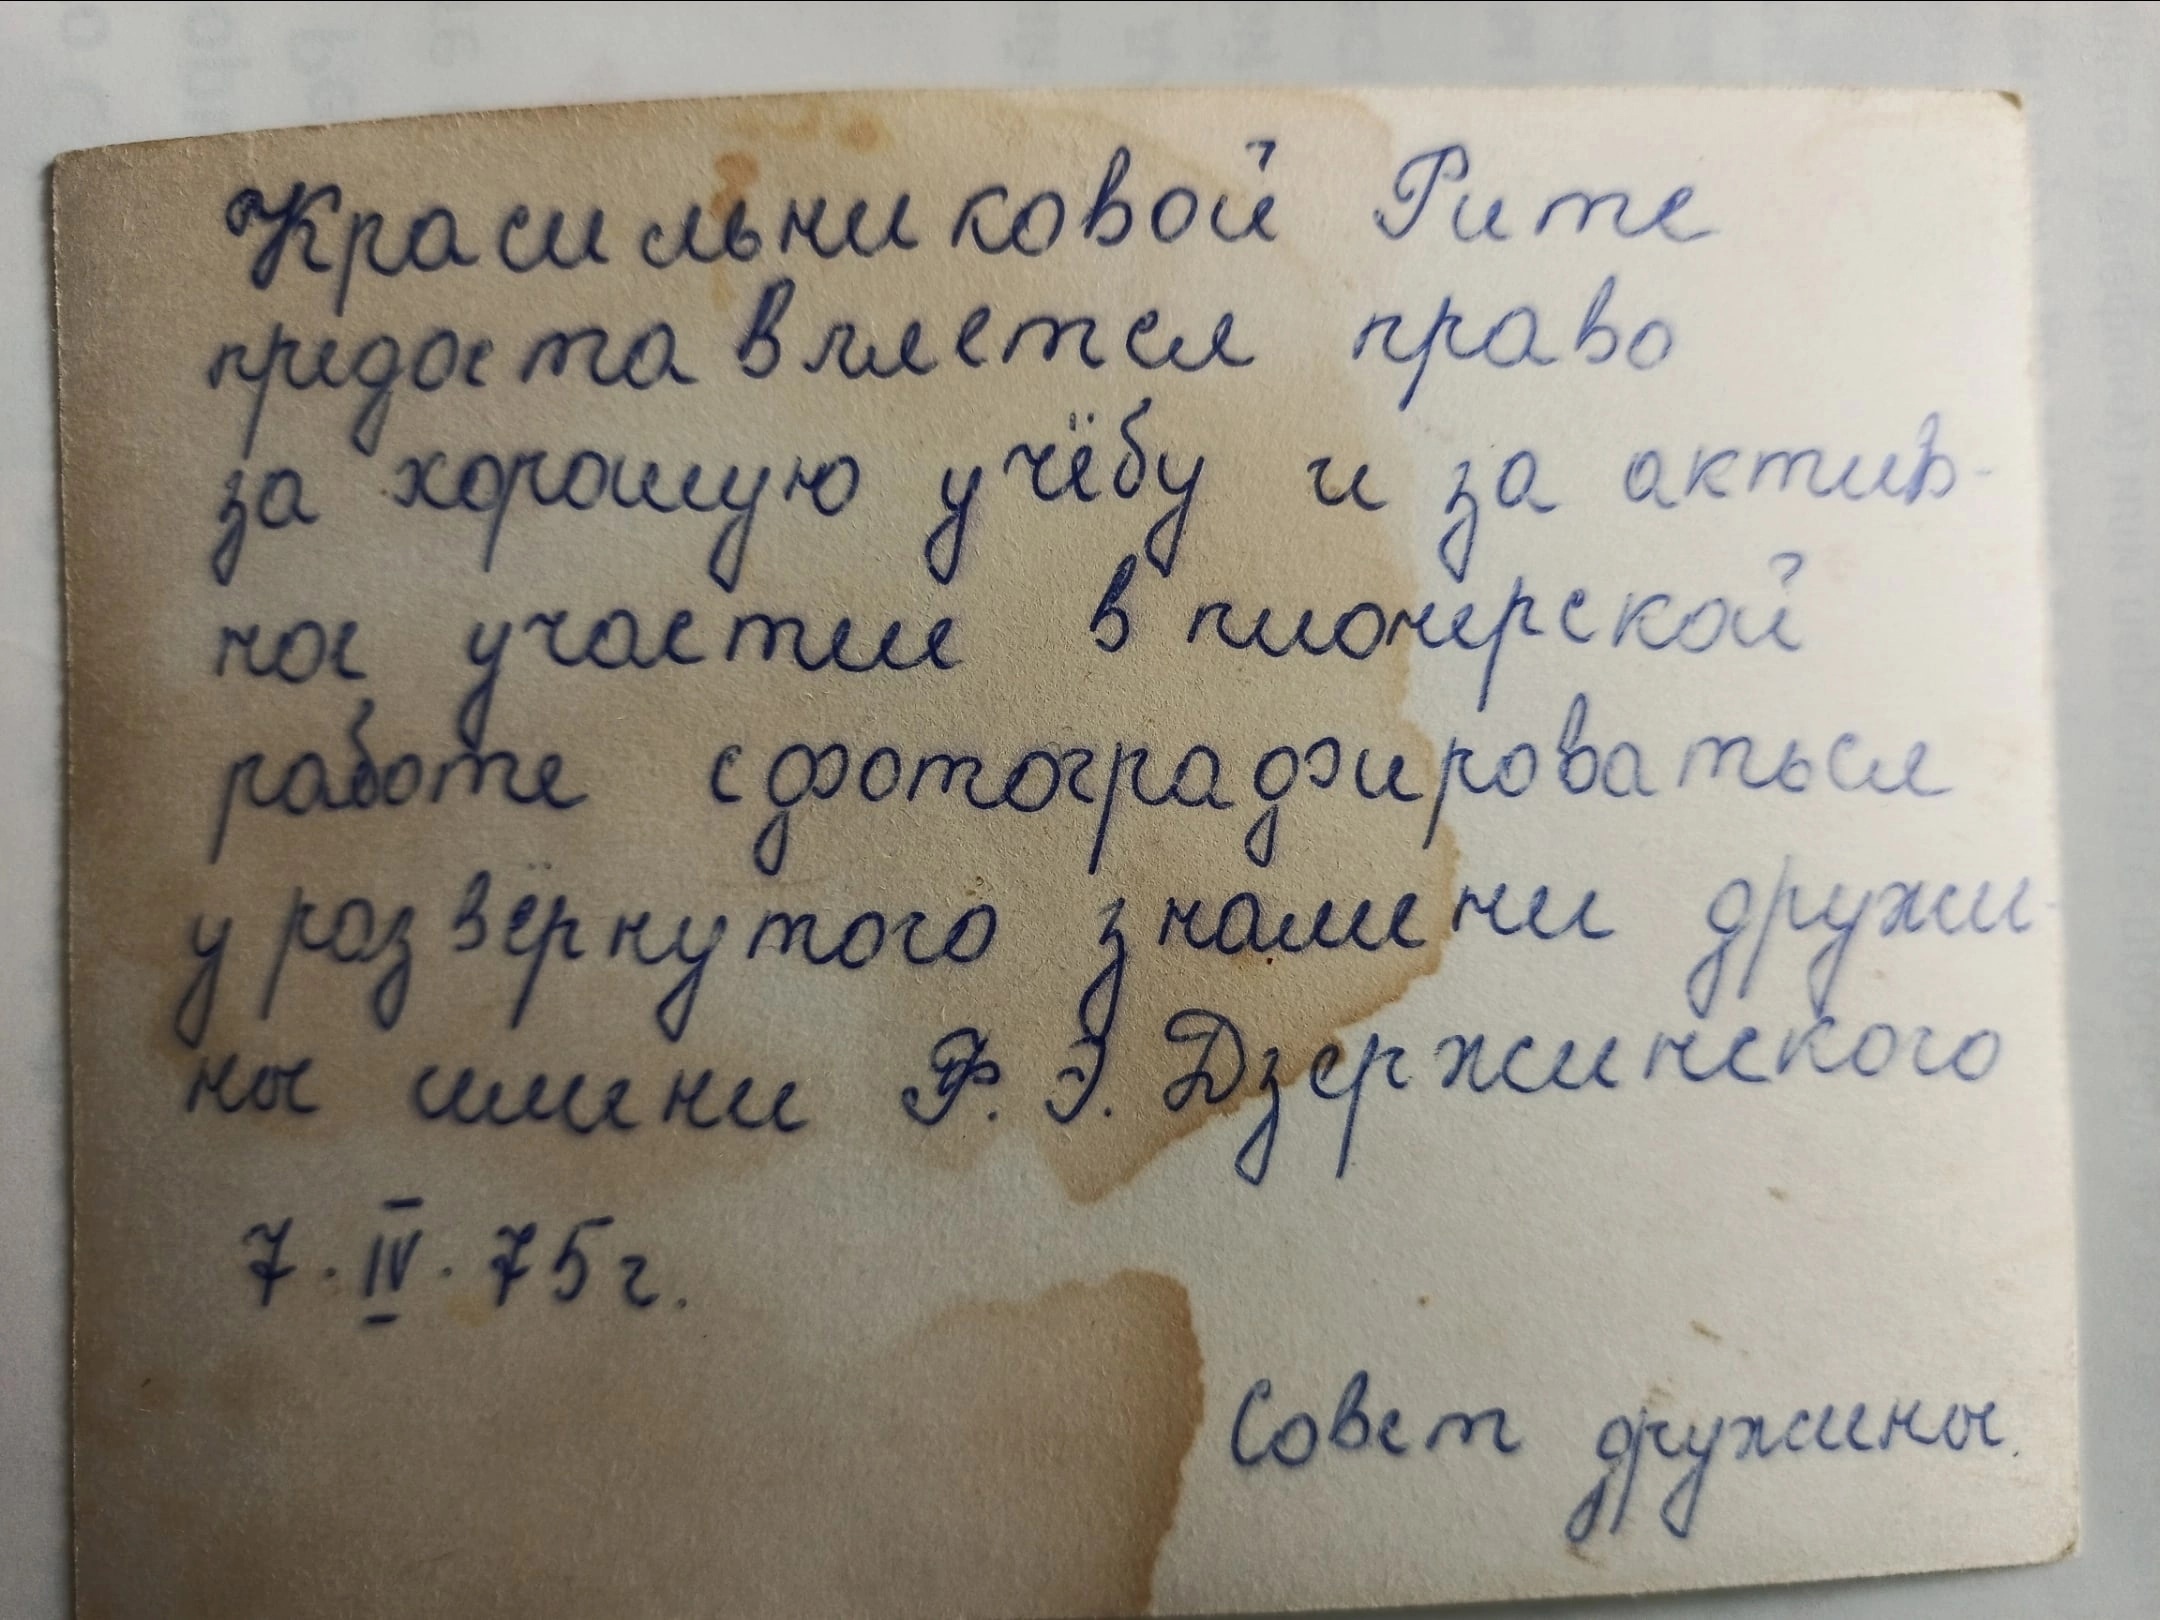 Красильниковой Рите
предоставляется право
за хорошую учёбу и за актив-
ное участие в пионерской
работе сфотографироваться
у развёрнутого знамени дружи-
ны имени Ф. Э. Дзержинского
7. IV. 75г.
Совет дружины.